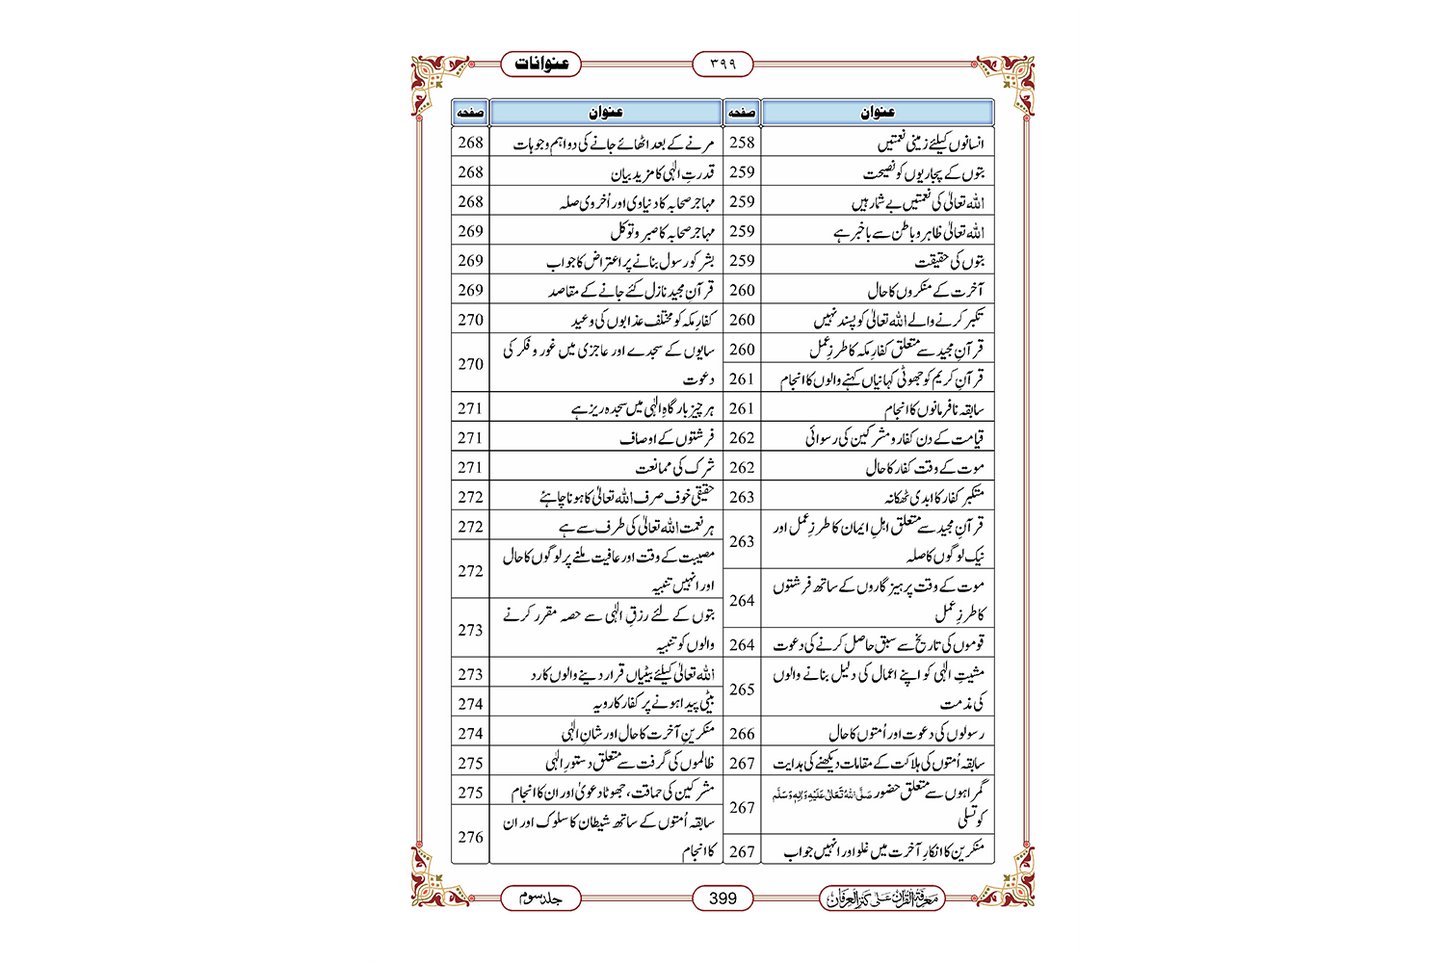 عنوانات
٣٩٩
عنوان صفحہ
انسانوں کیلئے زمینی نعمتیں 258
بتوں کے پجاریوں کو نصیحت 259
اللہ تعالیٰ کی نعمتیں بے شمار ہیں 259
اللہ تعالیٰ ظاہر و باطن سے باخبر ہے 259
بتوں کی حقیقت 259
آخرت کے منکروں کا حال 260
تکبر کرنے والے اللہ تعالیٰ کو پسند نہیں 260
قرآنِ مجید سے متعلق کفارِ مکہ کا طرزِ عمل 260
قرآنِ کریم کو جھوٹی کہانیاں کہنے والوں کا انجام 261
سابقہ نافرمانوں کا انجام 261
قیامت کے دن کفار و مشرکین کی رسوائی 262
موت کے وقت کفار کا حال 262
متکبر کفار کا ابدی ٹھکانہ 263
قرآنِ مجید سے متعلق اہلِ ایمان کا طرزِ عمل اور
نیک لوگوں کا صلہ 263
موت کے وقت پرہیزگاروں کے ساتھ فرشتوں
کا طرزِ عمل 264
قوموں کی تاریخ سے سبق حاصل کرنے کی دعوت 264
مشیتِ الٰہی کو اپنے اعمال کی دلیل بنانے والوں
کی مذمت 265
رسولوں کی دعوت اور اُمتوں کا حال 266
سابقہ اُمتوں کی ہلاکت کے مقامات دیکھنے کی ہدایت 267
گمراہوں سے متعلق حضور صَلَّی اللہُ تَعَالٰی عَلَیْہِ وَاٰلِہٖ وَسَلَّم
کو تسلی 267
منکرین کا انکارِ آخرت میں غلو اور انہیں جواب 267
عنوان صفحہ
مرنے کے بعد اٹھائے جانے کی دو اہم وجوہات 268
قدرتِ الٰہی کا مزید بیان 268
مہاجر صحابہ کا دنیاوی اور اُخروی صلہ 268
مہاجر صحابہ کا صبر و توکل 269
بشر کو رسول بنانے پر اعتراض کا جواب 269
قرآنِ مجید نازل کئے جانے کے مقاصد 269
کفارِ مکہ کو مختلف عذابوں کی وعید 270
سایوں کے سجدے اور عاجزی میں غور و فکر کی
دعوت 270
ہر چیز بارگاہِ الٰہی میں سجدہ ریز ہے 271
فرشتوں کے اوصاف 271
شرک کی ممانعت 271
حقیقی خوف صرف اللہ تعالیٰ کا ہونا چاہئے 272
ہر نعمت اللہ تعالیٰ کی طرف سے ہے 272
مصیبت کے وقت اور عافیت ملنے پر لوگوں کا حال
اور انہیں تنبیہ 272
بتوں کے لئے رزقِ الٰہی سے حصہ مقرر کرنے
والوں کو تنبیہ 273
اللہ تعالیٰ کیلئے بیٹیاں قرار دینے والوں کا رد 273
بیٹی پیدا ہونے پر کفار کا رویہ 274
منکرینِ آخرت کا حال اور شانِ الٰہی 274
ظالموں کی گرفت سے متعلق دستورِ الٰہی 275
مشرکین کی حماقت، جھوٹا دعویٰ اور ان کا انجام 275
سابقہ اُمتوں کے ساتھ شیطان کا سلوک اور ان
کا انجام 276
معرفۃ القرآن علی کنز العرفان
399
جلد سوم